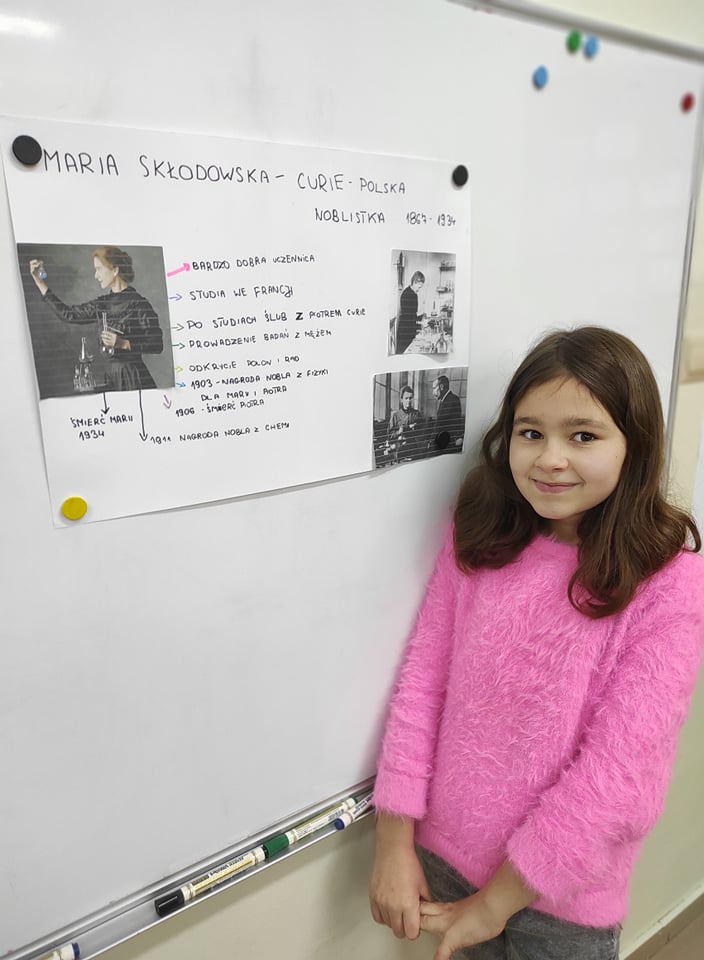 MARIA SKŁODOWSKA - CURIE - POLSKA
NOBLISTKA 1867 - 1934
BARDZO DOBRA UCZENNICA
STUDIA WE FRANCJI
PO STUDIACH ŚLUB Z PIOTREM CURIE
PROWADZENIE BADAŃ Z MĘŻEM
ODKRYCIE POLON I RAD
1903 - NAGRODA NOBLA Z FIZYKI
DLA MARII I PIOTRA
1906 - ŚMIERĆ PIOTRA
ŚMIERĆ MARII
1934
1911 NAGRODA NOBLA Z CHEMII